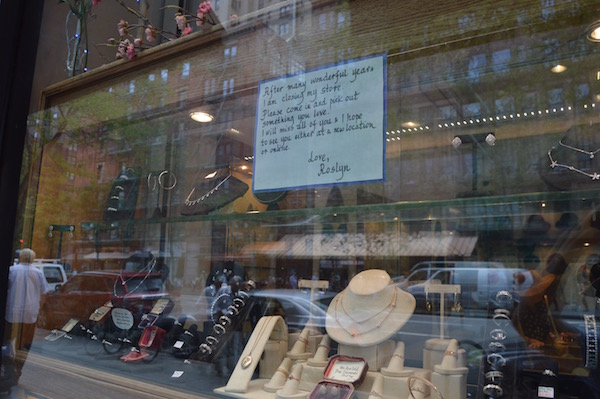 After many wonderful years
I am closing my store.
Please come in and pick out
something you love.
I will miss all of you & I hope
to see you either at a new location
or online.
Love,
Roslyn